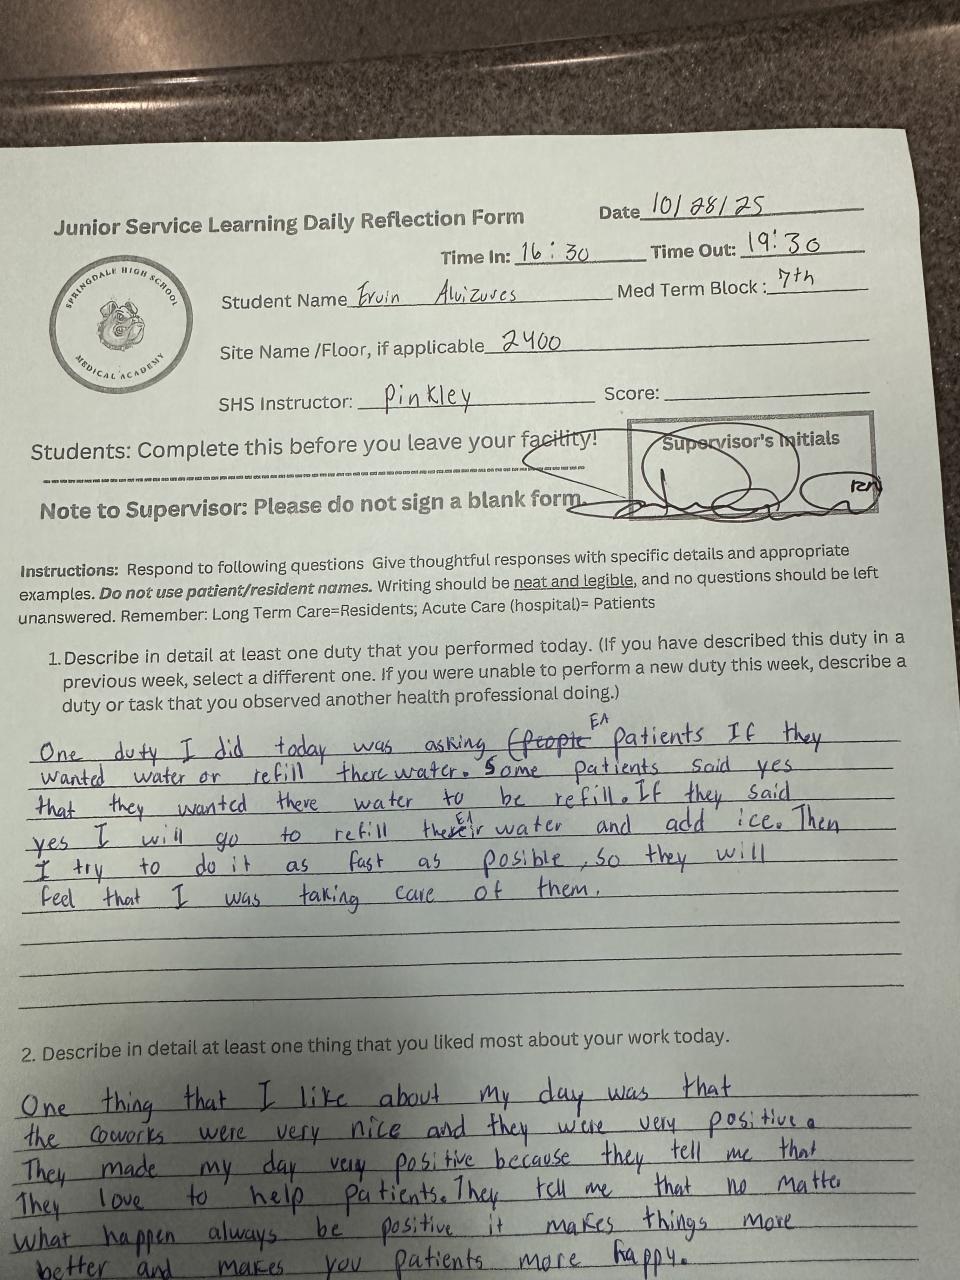 Junior Service Learning Daily Reflection Form
Date 10/28/25
Time In: 16:30 Time Out: 19:30
SPRINGDALE HIGH SCHOOL
MEDICAL ACADEMY
Student Name Ervin Alvizures Med Term Block: 7th
Site Name /Floor, if applicable 2400
SHS Instructor: Pinkley Score:
Students: Complete this before you leave your facility!
Supervisor's Initials
RN
Note to Supervisor: Please do not sign a blank form.
Instructions: Respond to following questions Give thoughtful responses with specific details and appropriate
examples. Do not use patient/resident names. Writing should be neat and legible, and no questions should be left
unanswered. Remember: Long Term Care=Residents; Acute Care (hospital)= Patients
1. Describe in detail at least one duty that you performed today. (If you have described this duty in a
previous week, select a different one. If you were unable to perform a new duty this week, describe a
duty or task that you observed another health professional doing.)
One duty I did today was asking (people EA patients If they
wanted water or refill there water. Some patients said yes
that they wanted there water to be refill. If they said
yes I will go to refill their EA water and add ice. Then
I try to do it as fast as posible, so they will
feel that I was taking care of them.
2. Describe in detail at least one thing that you liked most about your work today.
One thing that I like about my day was that
the coworks were very nice and they were very positive.
They made my day very positive because they tell me that
They love to help patients. They tell me that no matte
what happen always be positive it makes things more
better and makes you patients more happy.